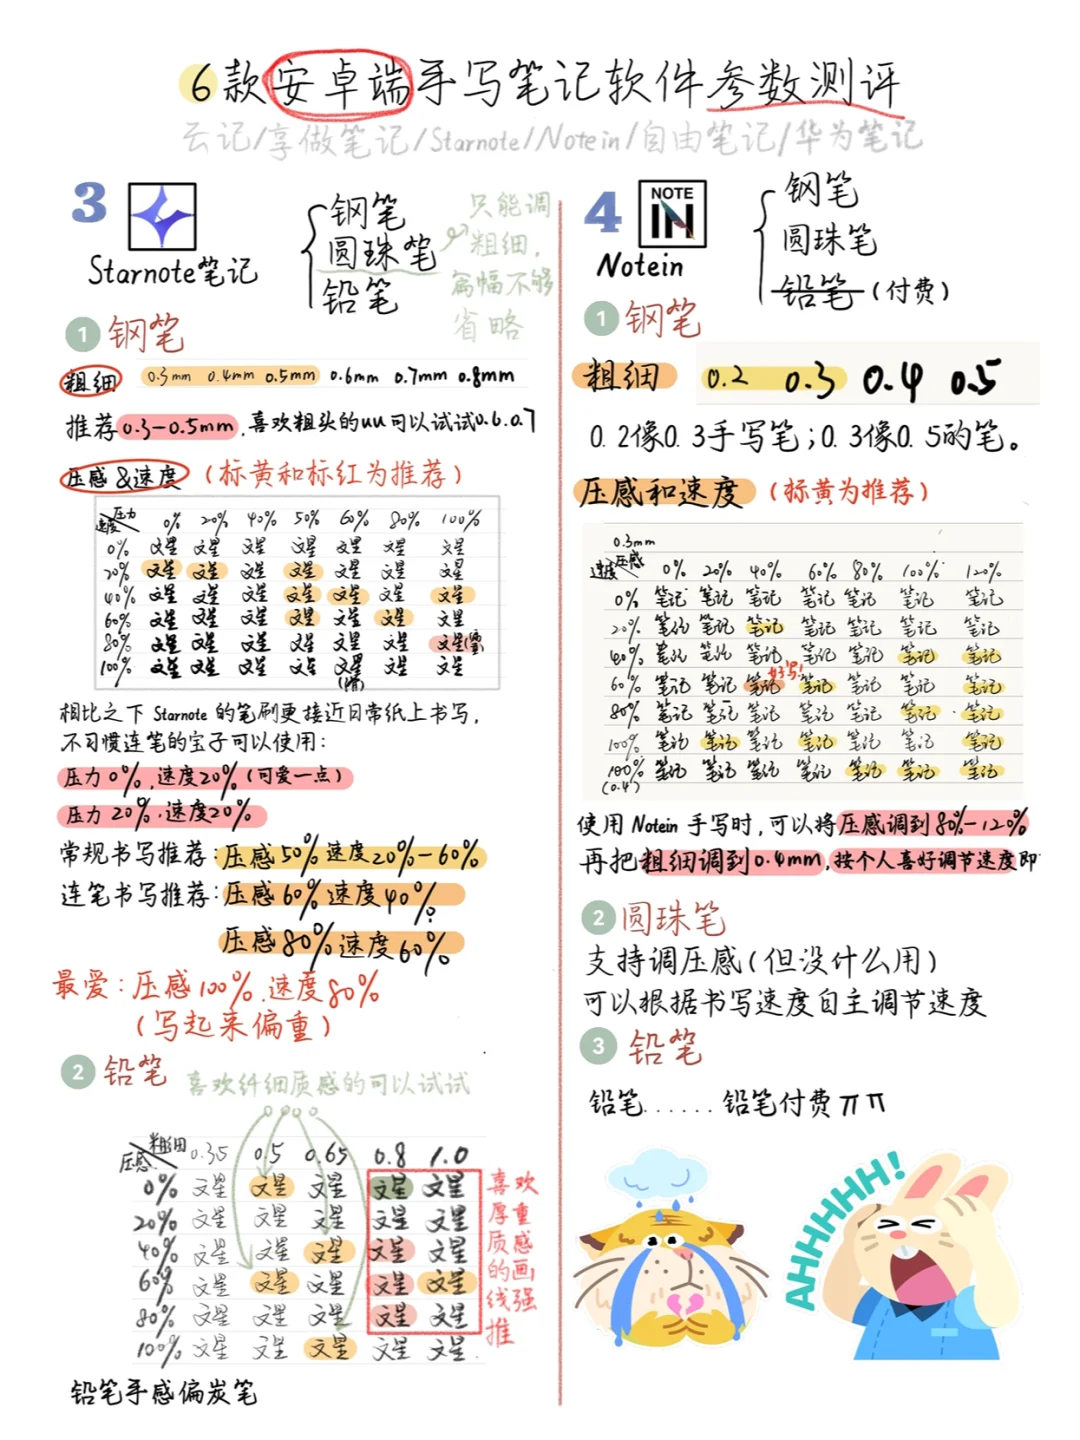 6款安卓端手写笔记软件参数测评
云记/享做笔记/Starnote/Notein/自由笔记/华为笔记
3
Starnote笔记
钢笔
圆珠笔
铅笔
只能调
粗细,
篇幅不够
省略
1 钢笔
粗细 0.3mm 0.4mm 0.5mm 0.6mm 0.7mm 0.8mm
推荐0.3-0.5mm,喜欢粗头的uu可以试试0.6.0.7
压感&速度(标黄和标红为推荐)
压力
速度 0% 20% 40% 50% 60% 80% 100%
0% 文星 文星 文星 文星 文星 文星 文星
20% 文星 文星 文星 文星 文星 文星 文星
40% 文星 文星 文星 文星 文星 文星 文星
60% 文星 文星 文星 文星 文星 文星 文星
80% 文星 文星 文星 文星 文星 文星 文星
100% 文星 文星 文星 文星 文星 文星 文星
相比之下 Starnote 的笔刷更接近日常纸上书写,
不习惯连笔的宝子可以使用:
压力0%,速度20%(可爱一点)
压力20%,速度20%
常规书写推荐:压感50%速度20%-60%
连笔书写推荐:压感60%速度40%
压感80%速度60%
最爱:压感100%,速度80%
(写起来偏重)
2 铅笔
喜欢纤细质感的可以试试
粗细
压感 0.35 0.5 0.65 0.8 1.0
0% 文星 文星 文星 文星 文星
20% 文星 文星 文星 文星 文星
40% 文星 文星 文星 文星 文星
60% 文星 文星 文星 文星 文星
80% 文星 文星 文星 文星 文星
100% 文星 文星 文星 文星 文星
喜欢
厚重
质感
的画
线强
推
铅笔手感偏炭笔
4
NOTE
IN
Notein
钢笔
圆珠笔
铅笔(付费)
1 钢笔
粗细 0.2 0.3 0.4 0.5
0.2像0.3手写笔;0.3像0.5的笔。
压感和速度(标黄为推荐)
0.3mm
压感
速度 0% 20% 40% 60% 80% 100% 120%
0% 笔记 笔记 笔记 笔记 笔记 笔记 笔记
20% 笔记 笔记 笔记 笔记 笔记 笔记 笔记
40% 笔记 笔记 笔记 笔记 笔记 笔记 笔记
好写!
60% 笔记 笔记 笔记 笔记 笔记 笔记 笔记
80% 笔记 笔记 笔记 笔记 笔记 笔记 笔记
100% 笔记 笔记 笔记 笔记 笔记 笔记 笔记
100% 笔记 笔记 笔记 笔记 笔记 笔记 笔记
(0.4)
使用 Notein 手写时,可以将压感调到80%-120%
再把粗细调到0.4mm,按个人喜好调节速度即
2 圆珠笔
支持调压感(但没什么用)
可以根据书写速度自主调节速度
3 铅笔
铅笔......铅笔付费ππ
AHHHHH!